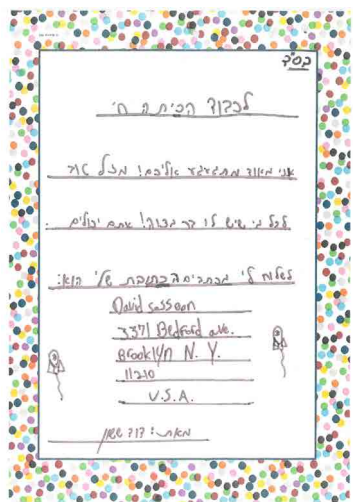 בס"ד
לכבוד הכיתה ח'
אני מאוד מתגעגע אליכם! מזל טוב
לכל מי שיש לו בר מצוה! אתם יכולים
לשלוח לי מכתבים הכתובת שלי הוא:
David Sassoon
3371 Bedford ave.
Brooklyn N. Y.
11210
U.S.A.
מאת: דוד ששון